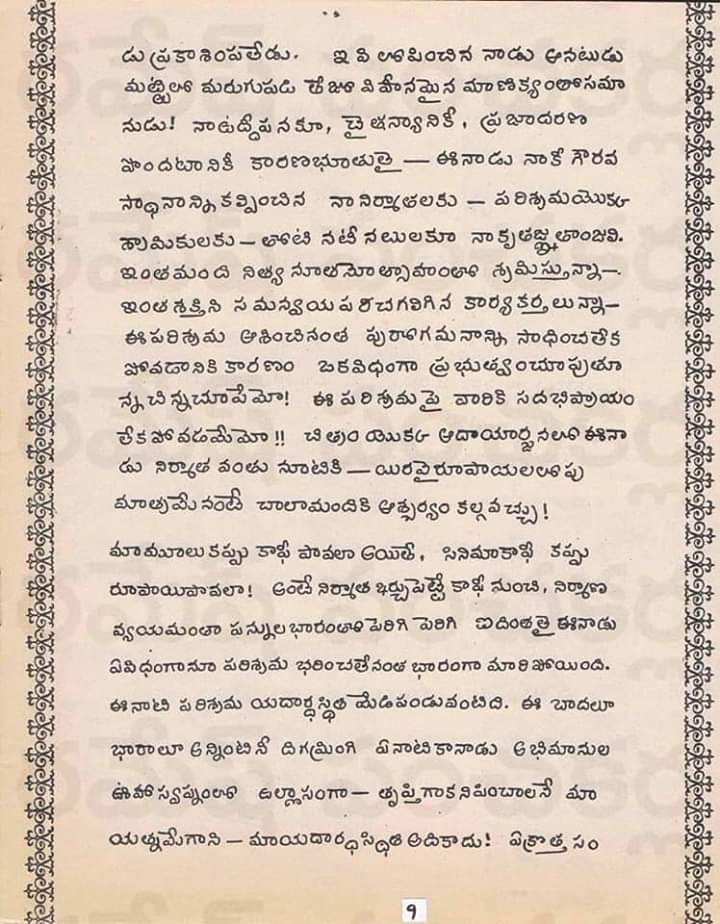 డు ప్రకాశింపలేడు. ఇవి లోపించిన నాడు ఆనటుడు
మట్టిలో మరుగుపడి తేజోవిహీనమైన మాణిక్యంతోసమా
నుడు! నాఉద్దీపనకూ, చైతన్యానికీ, ప్రజాదరణ
పొందటానికీ కారణభూతులై — ఈనాడు నాకీ గౌరవ
స్థానాన్ని కల్పించిన నా నిర్మాతలకు — పరిశ్రమయొక్క
శ్రామికులకు — తోటి నటీనటులకూ నా కృతజ్ఞతాంజలి.
ఇంతమంది నిత్య నూతనోత్సాహంతో శ్రమిస్తున్నా—
ఇంతశక్తిని సమన్వయపరిచగలిగిన కార్యకర్తలున్నా—
ఈపరిశ్రమ ఆశించినంత పురోగమనాన్ని సాధించలేక
పోవడానికి కారణం ఒకవిధంగా ప్రభుత్వంచూపుతూ
న్న చిన్నచూపేమో! ఈ పరిశ్రమపై వారికి సదభిప్రాయం
లేకపోవడమేమో!! చిత్రం యొక్క ఆదాయార్జనలో ఈనా
డు నిర్మాత వంతు నూటికి — యిరవైరూపాయలలోపు
మాత్రమేనంటే చాలామందికి ఆశ్చర్యం కల్గవచ్చు!
మామూలుకప్పు కాఫీ పావలా అయితే, సినిమాకాఫీ కప్పు
రూపాయిపావలా! అంటే నిర్మాత ఖర్చుపెట్టే కాఫీ నుంచి, నిర్మాణ
వ్యయమంతా పన్నులభారంతో పెరిగి పెరిగి ఐదింతలై ఈనాడు
ఏవిధంగానూ పరిశ్రమ భరించలేనంత భారంగా మారిపోయింది.
ఈనాటి పరిశ్రమ యదార్థస్థితి మేడిపండువంటిది. ఈ బాదలూ
భారాలూ అన్నింటినీ దిగమ్రింగి ఏనాటికానాడు అభిమానుల
ఊహాస్వప్నంలో ఉల్లాసంగా — తృప్తిగా కనిపించాలనే మా
యత్నమేగాని — మాయదార్థస్థితి అదికాదు! ఏక్రొత్త సం
9